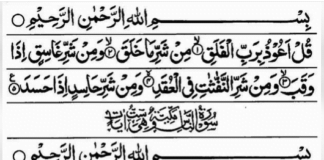 بِسْمِ اللهِ الرَّحْمٰنِ الرَّحِيْمِ ○
قُلْ اَعُوْذُ بِرَبِّ الْفَلَقِ ۙ﴿۱﴾ مِنْ شَرِّ مَا خَلَقَ ۙ﴿۲﴾ وَمِنْ شَرِّ غَاسِقٍ اِذَا
وَقَبَ ۙ﴿۳﴾ وَمِنْ شَرِّ النَّفّٰثٰتِ فِی الْعُقَدِ ۙ﴿۴﴾ وَمِنْ شَرِّ حَاسِدٍ اِذَا حَسَدَ ﴿۵﴾
سُوْرَةُ النَّاسِ مَكِّيَّةٌ وَّهِيَ سِتُّ اٰيَاتٍ
بِسْمِ اللهِ الرَّحْمٰنِ الرَّحِيْمِ ○